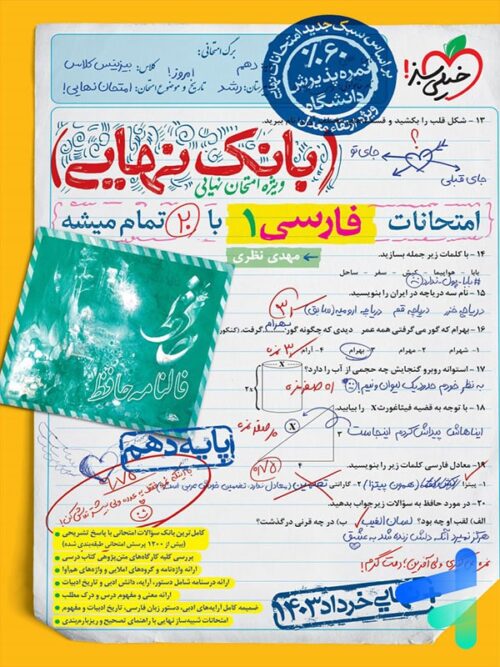 خیلی سبز!
بر اساس سبک جدید امتحانات نهایی
%۶۰
نمره پذیرش
دانشگاه
ویژه ارتقاء معدل
برگ امتحانی:
دهم
کلاس: بیزینس کلاس
امروز!
رشد
تاریخ و موضوع امتحان: امتحان نهایی!
۱۳ - شکل قلب را بکشید و
نام ببرید.
جای تو
؟
جای قبلی
(بانک نهایی)
ویژه امتحان نهایی
امتحانات فارسی ۱ با ۲۰ تمام میشه
مهدی نظری
۱۴ - با کلمات زیر جمله بسازید.
بابا - هواپیما - کیش - سفر - ساحل
#بابا_پول_ندارد
۱۵ - نام سه دریاچه در ایران را بنویسید.
دریاچه خزر دریاچه قم دریاچه ارومیه (سابق)
۱۶ - بهرام که گور می‌گرفتی همه عمر دیدی که چگونه گور بهرام گرفت. (کنکور)
۱- شهرام ۲- مهرام ۳- بهرام ۴- آرام
۱۷ - استوانه روبرو گنجایش چه حجمی از آب را دارد؟
به نظر خودم حدود یک لیوان و نیم!
X
2x
۱۸ - با توجه به قضیه فیثاغورث X را بیابید.
ایناهاش پیداش کردم اینجاست
X
3
4
۱۹- معادل فارسی کلمات زیر را بنویسید.
۱- پیتزا
(همون پیتزا)
۲- گارانتی
تضمین
۲۰ - در مورد حافظ به سؤالات زیر جواب بدهید.
الف) لقب او چه بود؟ لسان الغیب ب) در چه قرنی درگذشت؟
هرگز نمیرد آنکه دلش زنده شد به عشق
فال حافظ
فالنامه حافظ
پایه دهم
کامل‌ترین بانک سؤالات امتحانی با پاسخ تشریحی
(بیش از ۱۲۰۰ پرسش امتحانی طبقه‌بندی شده)
بررسی کلیه کارگاه‌های متن‌پژوهی کتاب درسی
ارائه واژه‌نامه و گروه‌های املایی و واژه‌های هم‌آوا
ارائه درسنامه شامل دستور، آرایه، دانش ادبی و تاریخ ادبیات
ارائه معنی و مفهوم درس و درک مطلب
ضمیمه کامل آرایه‌های ادبی، دستور زبان فارسی، تاریخ ادبیات و مفهوم
امتحانات شبیه‌ساز نهایی با راهنمای تصحیح و ریزبارم‌بندی
نهایی خرداد ۱۴۰۳